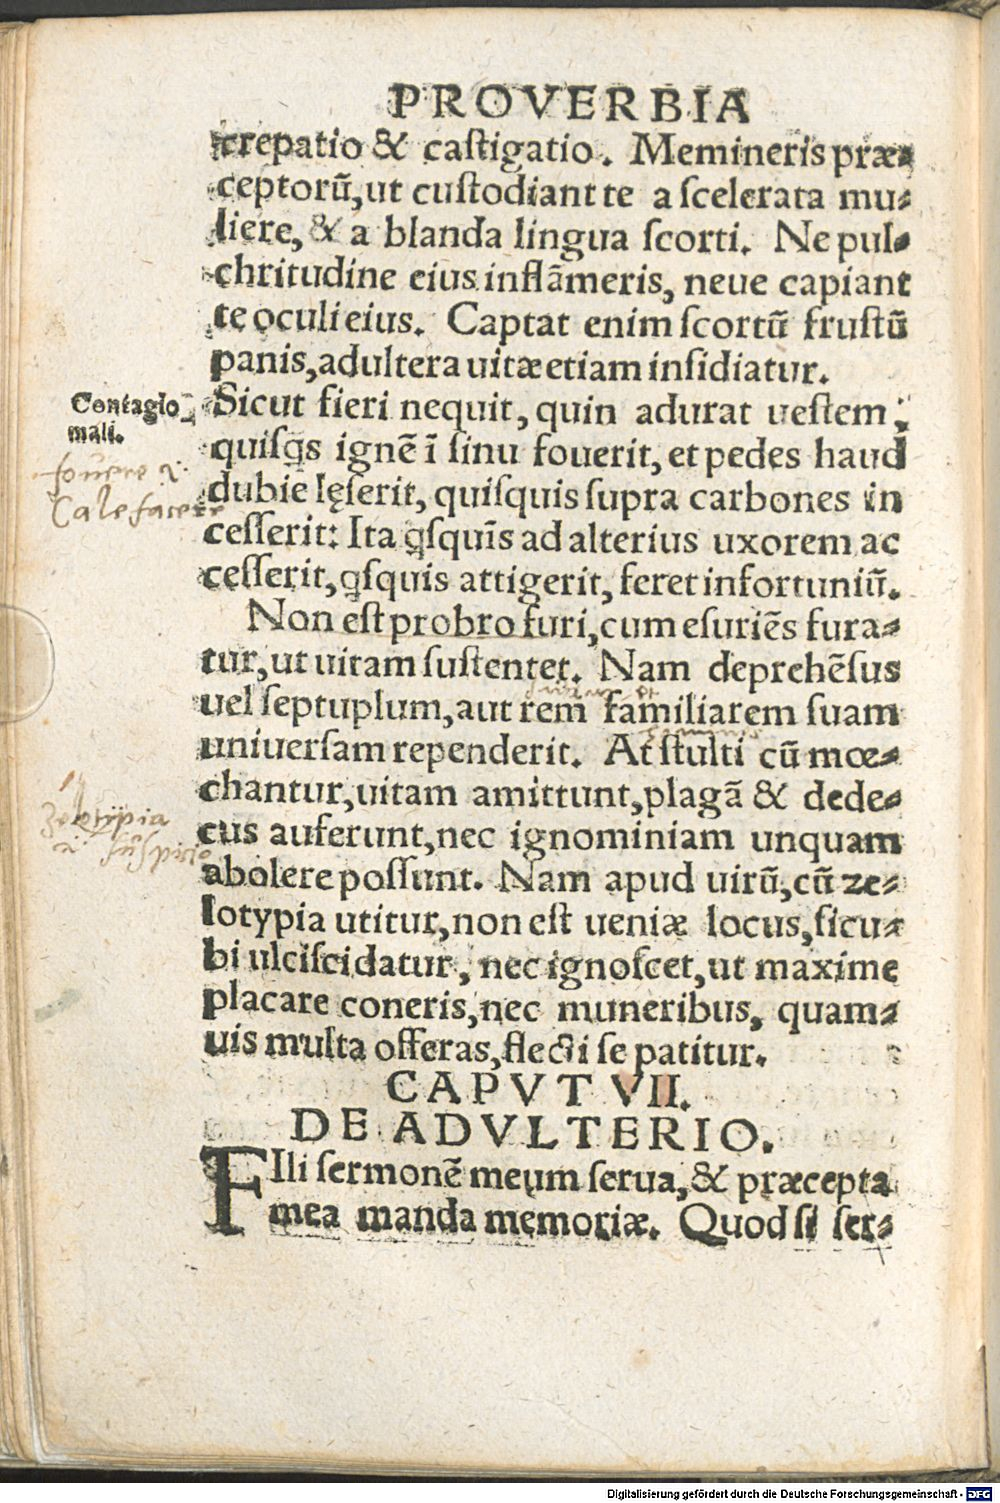 PROVERBIA
crepatio & castigatio. Memineris præ⸗
ceptorũ, ut custodiant te a scelerata mu⸗
liere, & a blanda lingua scorti. Ne pul⸗
chritudine eius inflãmeris, neue capiant
te oculi eius. Captat enim scortũ frustũ
panis, adultera uitæ etiam insidiatur.
Contagio
mali.
Sicut fieri nequit, quin adurat uestem,
quisq̃s ignẽ ĩ sinu fouerit, et pedes haud
fouere .i.
Calefacere
dubie lęserit, quisquis supra carbones in
cesserit: Ita q̃squĩs ad alterius uxorem ac
cesserit, q̃squis attigerit, feret infortuniũ.
Non est probro furi, cum esuriẽs fura⸗
tur, ut uitam sustentet. Nam deprehẽsus
uel septuplum, aut rem familiarem suam
uniuersam rependerit. At stulti cũ mœ⸗
chantur, uitam amittunt, plagã & dede⸗
zelotypia
.i. suspicio
cus auferunt, nec ignominiam unquam
abolere possunt. Nam apud uirũ, cũ ze⸗
lotypia utitur, non est ueniæ locus, sicu⸗
bi ulcisci datur, nec ignoscet, ut maxime
placare coneris, nec muneribus, quam⸗
uis multa offeras, flecti se patitur.
CAPVT VII.
DE ADVLTERIO.
FIli sermonẽ meum serua, & præcepta
mea manda memoriæ. Quod si ser⸗
Digitalisierung gefördert durch die Deutsche Forschungsgemeinschaft - DFG